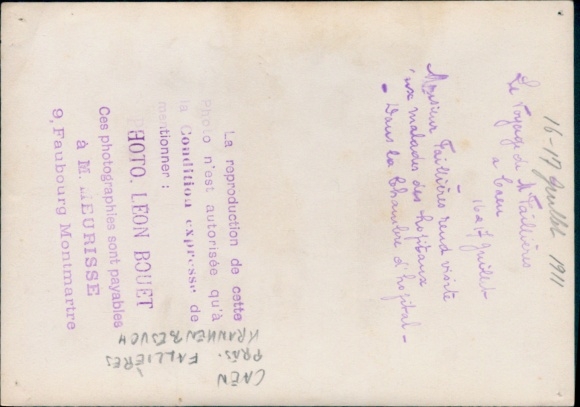 16-17 Juillet 1911
Le Voyage de M Faillières
a Caen
16 et 17 Juillet
Monsieur Faillières rend visite
aux malades des hopitaux
- Dans la Chambre d'hopital -
La reproduction de cette
Photo n'est autorisée qu'à
la Condition expresse de
mentionner :
PHOTO. LEON BOUET
Ces photographies sont payables
à M. MEURISSE
9, Faubourg Montmartre
CAEN
PRÄS. FALLIÈRES
KRANKENBESUCH